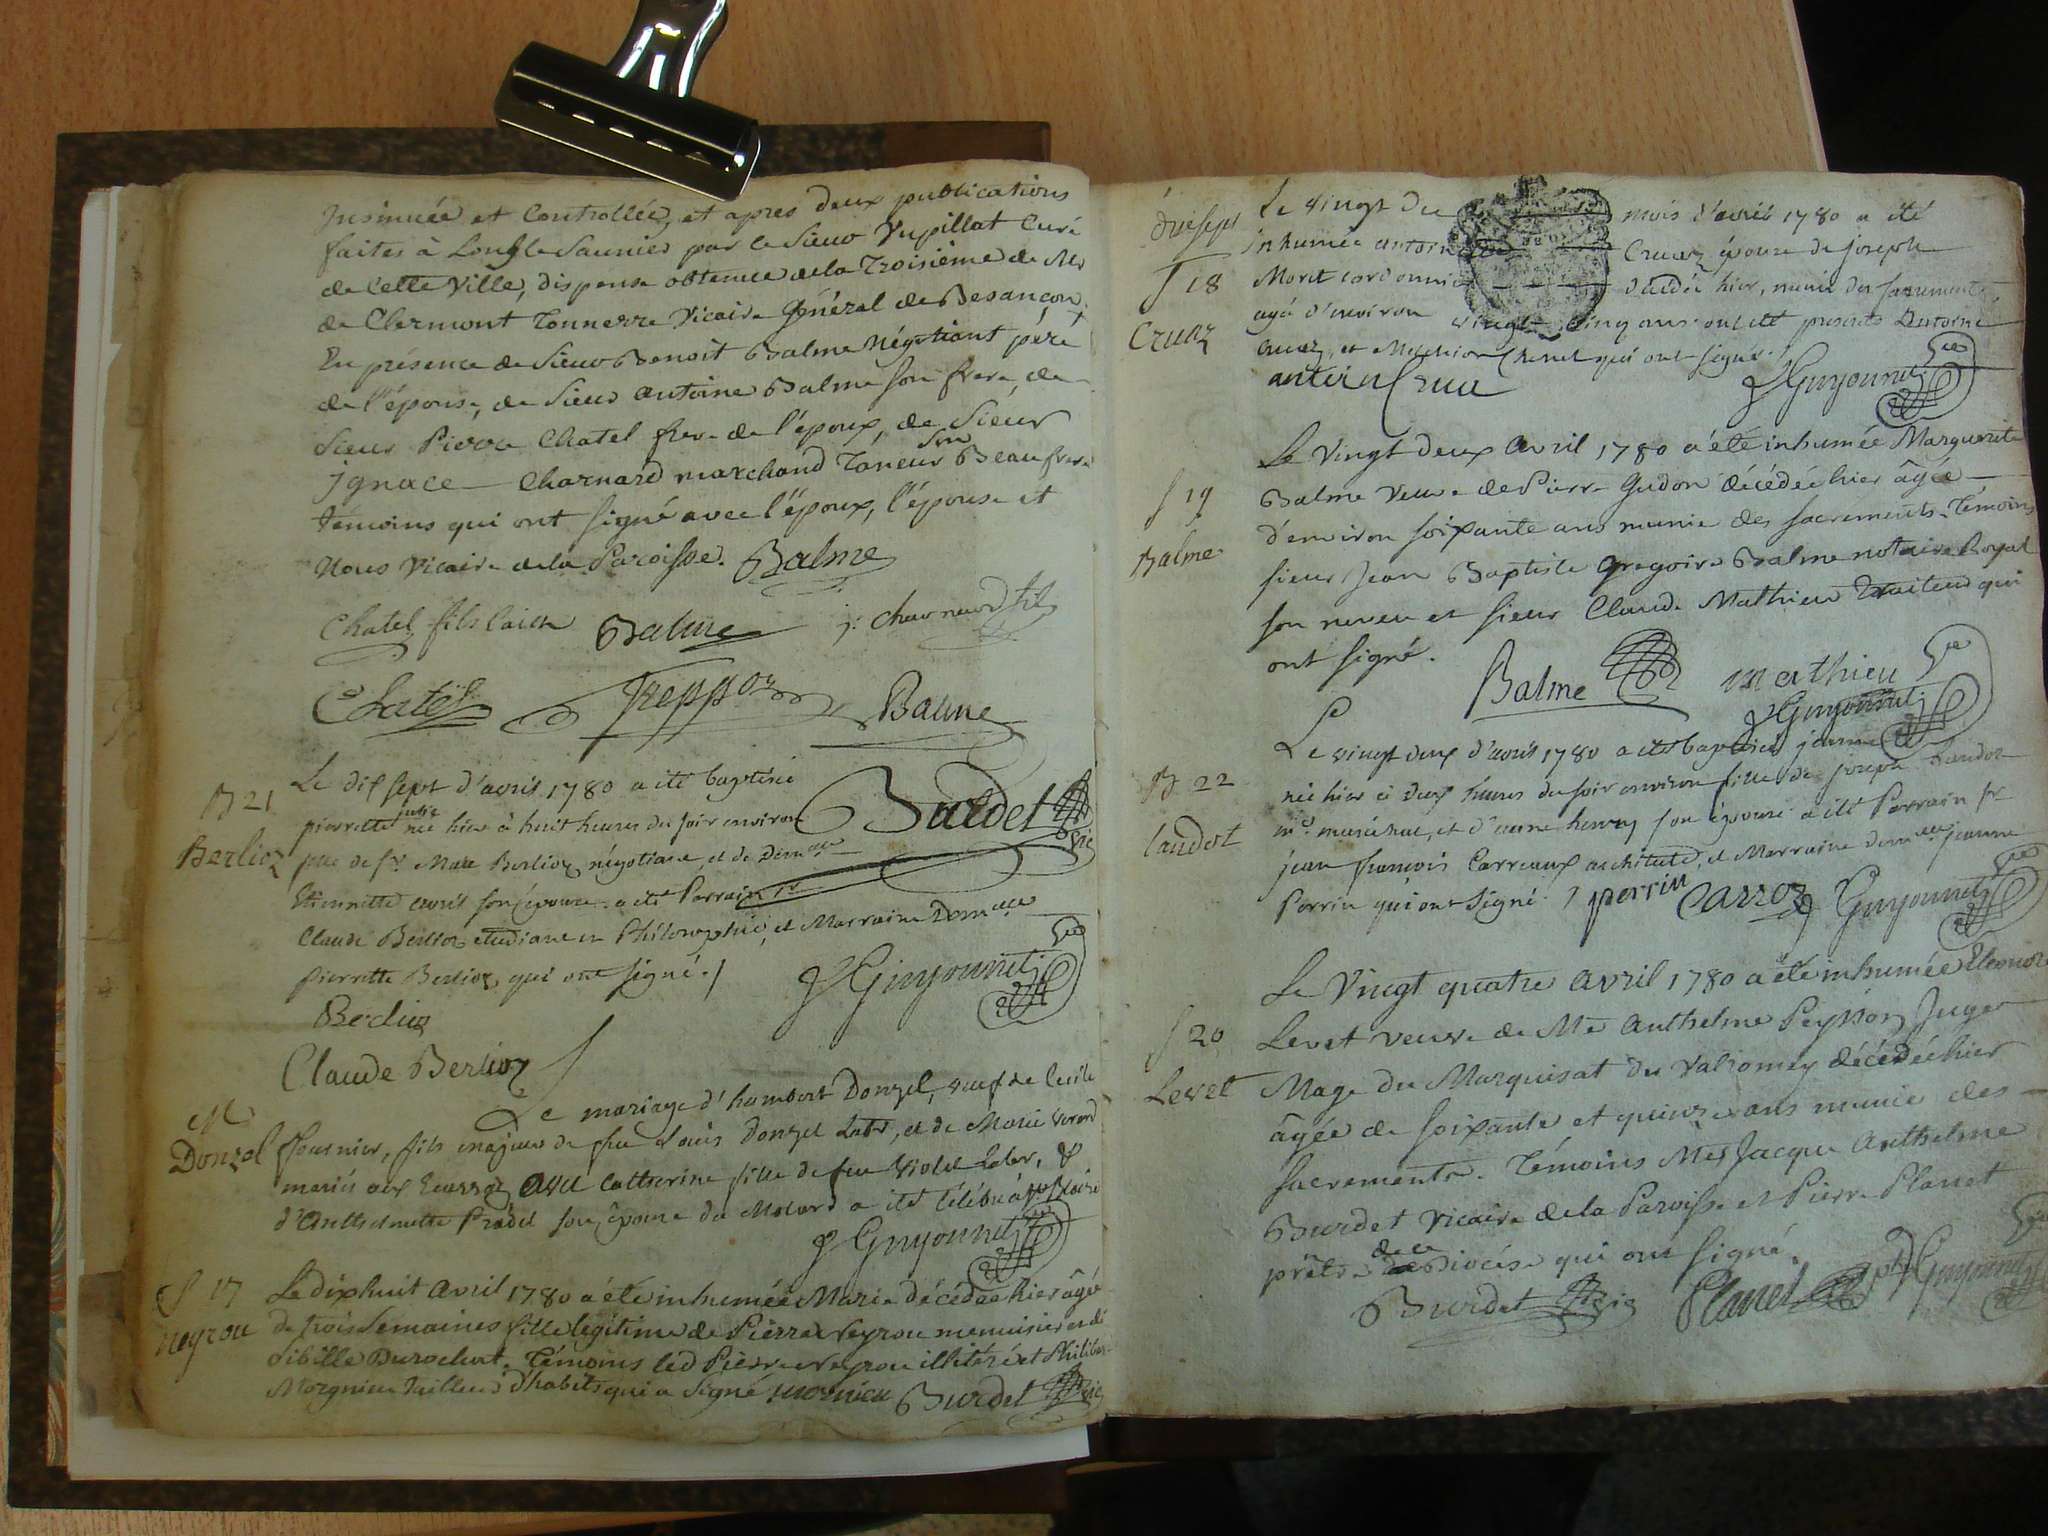 Insinuée et Controllée, et apres deux publications
faites à Lons le Saunier par le Sieur Vupillat Curé
de Cette Ville, dispense obtenue de la Troisième de Mr
de Clermont Tonnerre Vicaire Général de Besançon.
En présence de Sieur Benoit Balme Négotiant père
de l'épouse, de Sieur antoine Balme son frere, de
Sieur Pierre Chatel frere de l'époux, de Sieur
ignace Charnard marchand Taneur son Beaufrere
témoins qui ont signé avec l'époux, l'épouse et
Nous Vicaire de la Paroisse. Balme
Chatel fils Balme j: charnard fils
Chatel Baume
B 21
Berlioz
Le dix sept d'avril 1780 a été baptisée
pierrette née hier à huit heures du soir environ
Burdet vic
de sr. Marc Berlioz négotiant, et de Demlle
Etiennette avril son épouse a été Parrain sr
Claude Berlioz etudiant en Philosophie, et Marraine Demlle
pierrette Berlioz qui ont signé. /
Guyonnet
Berlioz
Claude Berlioz
M
Donzel
Le mariage d'humbert Donzel, veuf de Cecile
fournier, fils majeur de feu Louis Donzel Labr, et de Marie
mariés avec Catherine fille de feu Violet Labr, &
d'Anthelmette Pradel son épouse du Molard a été Célébré
Guyonnet
S 17
Neyrou
Le dix huit Avril 1780 a été inhumée Marie décédée hier âgée
de trois Semaines fille légitime de Pierre Neyrou menuisier et de
Sibille Durochat. Témoins led Pierre Neyrou illitéré et Philibert
Morgnieu Tailleur d'habits qui a signé mornieu Burdet vic
S 18
Cruaz
Le vingt du mois d'avril 1780 a été
inhumée Cruaz épouse de joseph
Moret cordonnier décédée hier, munie des sacrements,
agé d'environ vingt cinq ans ont été presents Antoine
Cruaz, et Melchior Chenet qui ont signé.
Guyonnet
S 19
Balme
Le Vingt deux Avril 1780 a été inhumée Marguerite
Balme Veuve de Pierre Gudon décédée hier âgée
d'environ soixante ans munie des sacrements. Témoins
sieur Jean Baptiste Gregoire Balme notaire Royal
son neveu et sieur Claude Mathieu Traiteur qui
ont signé.
Balme mathieu
Guyonnet
B 22
Landot
Le vingt deux d'avril 1780 a été baptisée jeanne
née hier à deux heures du soir environ fille de joseph Landot
me marechal, et d'anne henry son épouse a été Parrain sr
jean françois Carreaux architecte, et Marraine Demlle jeanne
Perrin qui ont signé. / perrin Guyonnet
S 20
Levet
Le Vingt quatre Avril 1780 a été inhumée Eleonore
Levet veuve de Me Anthelme Peysson Juge
Mage du Marquisat du Valromey décédée hier
âgée de soixante et quinze ans munie des
sacrements. Témoins Mes Jacque Anthelme
Burdet Vicaire de la Paroisse et Pierre Planet
prêtre de ce diocèse qui ont signé.
Burdet vic Planet ptre Guyonnet